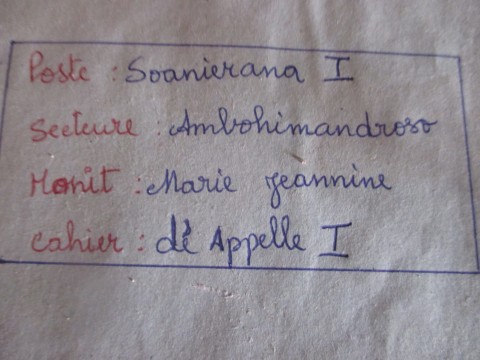 Poste : Soanierana I
Secteure : Ambohimandroso
Monit : Marie jeannine
cahier : dé Appelle I